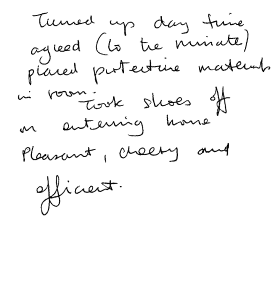 Turned up day time
agreed (to the minute)
placed protective materials
in room.
Took shoes off
on entering home
Pleasant, cheery and
efficient.